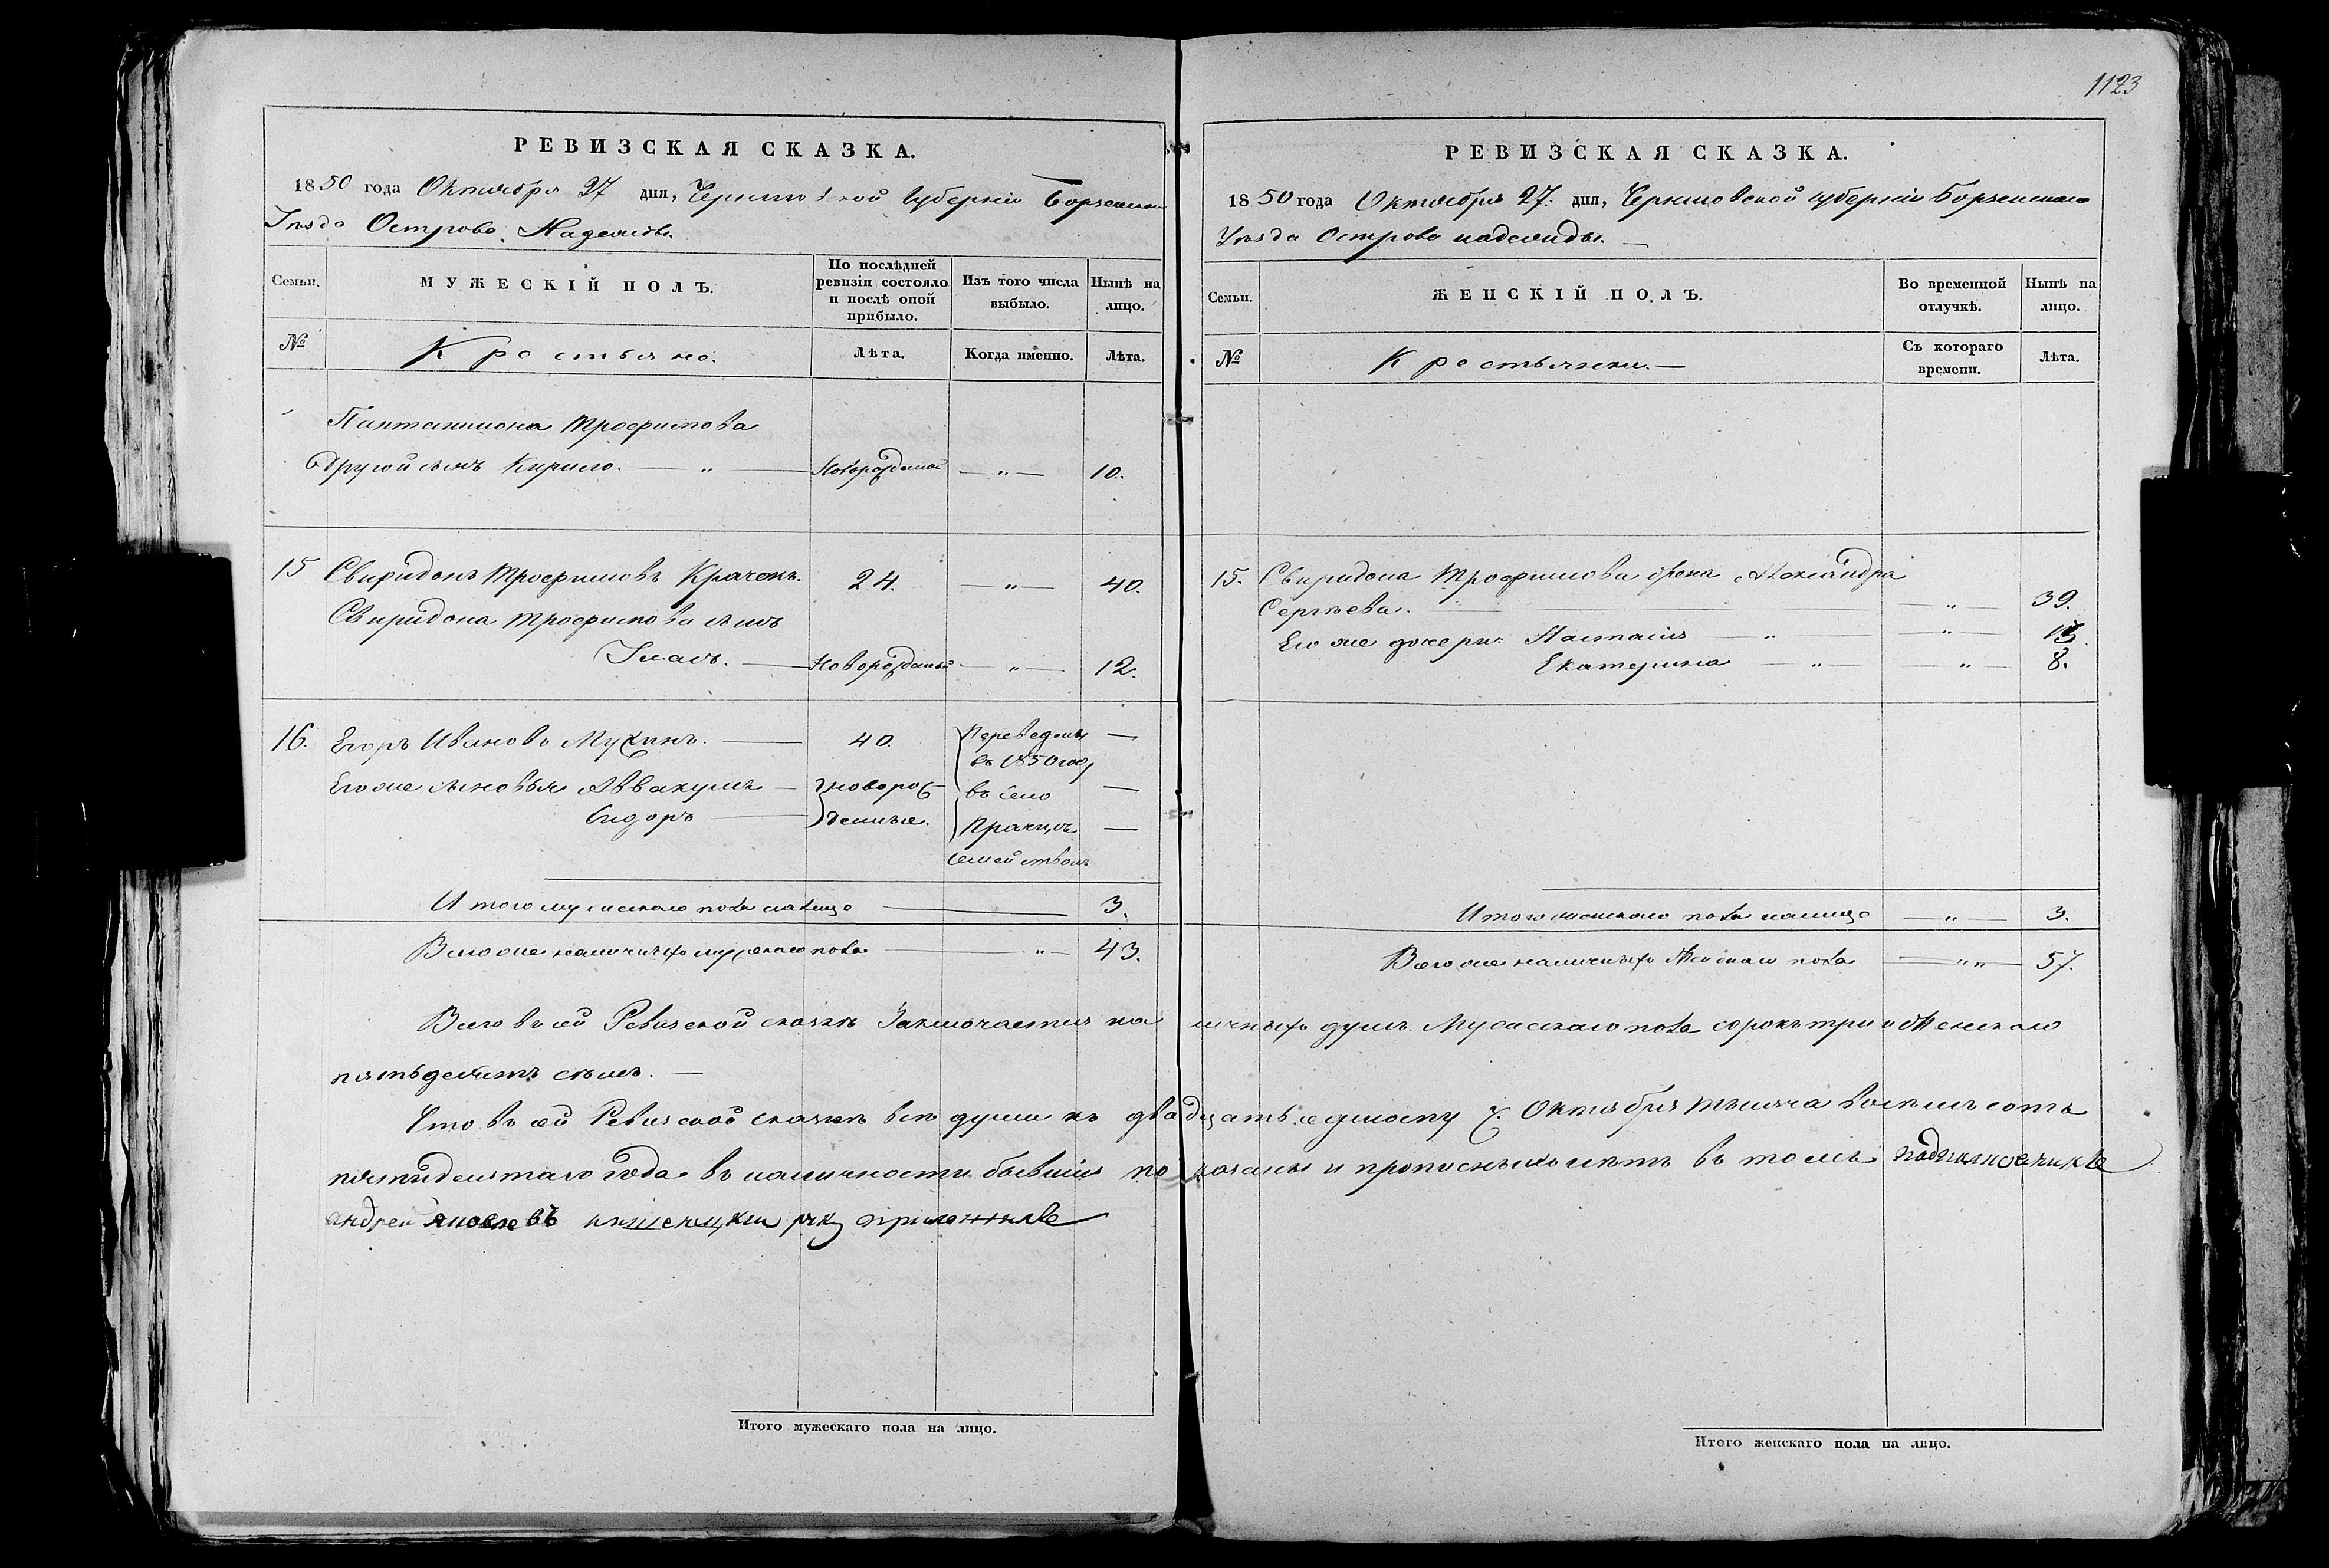 1123
РЕВИЗСКАЯ СКАЗКА.
1850 года Октября 27 дня, Черниговской Губерніи Борзенскаго
Уѣзда Острова Надежды.
Семьи.
МУЖЕСКІЙ ПОЛЪ.
По послѣдней ревизіи состояло и послѣ оной прибыло.
Изъ того числа выбыло.
Нынѣ на лицо.
№
Крестьяне.
Лѣта.
Когда именно.
Лѣта.
Пантелимона Трофимова
другой сынъ Кирило. — " — Новорожденный — " — 10.
15 Свиридонъ Трофимовъ 24. — " — 40.
Свиридона Трофимова сынъ
Игнатъ. — Новорожденный — " — 12.
16. Егоръ Ивановъ Мухинъ. — 40. Переведены —
въ 1850 году
Его же сыновья Аввакумъ — новорож- въ село —
Сидоръ — денные. —
семействомъ
Итого мужескаго пола налицо — 3.
Всего же наличныхъ мужескаго пола — " — 43.
РЕВИЗСКАЯ СКАЗКА.
1850 года Октября 27. дня, Черниговской губерніи Борзенскаго
Уѣзда Острова надежды. —
Семьи.
ЖЕНСКІЙ ПОЛЪ.
Во временной отлучкѣ.
Нынѣ на лицо.
№
Крестьянки. —
Съ котораго времени.
Лѣта.
15. Свиридона Трофимова жена Александра
Сергѣева. — " — 39.
Его же дочери: Настасія — " — " —
Екатерина — " — " — 8.
Итого женскаго пола налицо — " — 3.
Всего же наличныхъ Женскаго пола — " " — 57.
Всего въ сей Ревизской сказкѣ Заключается наличныхъ душъ Мужескаго пола сорокъ три и Женскаго
пятьдесятъ семь. —
Что въ сей Ревизской сказкѣ всѣ души къ двадцать седьмому ч. Октября тысяча восемь сотъ
пятидесятаго года въ наличности бывшія показаны и прописныхъ нѣтъ въ томъ
андрей яковлевъ руку приложилъ
Итого мужескаго пола на лицо.
Итого женскаго пола на лицо.